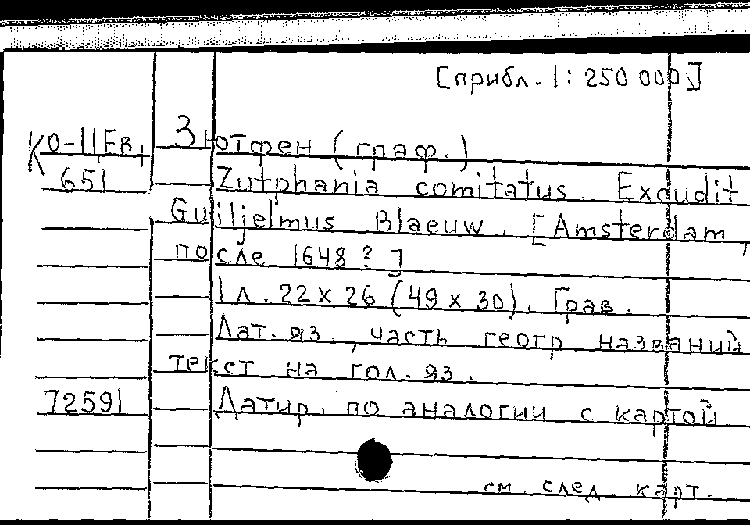 [прибл. 1: 250 000]
КО-II Ев, Зютфен (граф.)
651 Zutphania comitatus. Excudit
Guiljelmus Blaeuw. [Amsterdam,
после 1648 ? ]
1 л. 22 x 26 (49 x 30). Грав.
Лат. яз., часть геогр названий
текст на гол. яз.
72591 Датир. по аналогии с картой
см. след. карт.